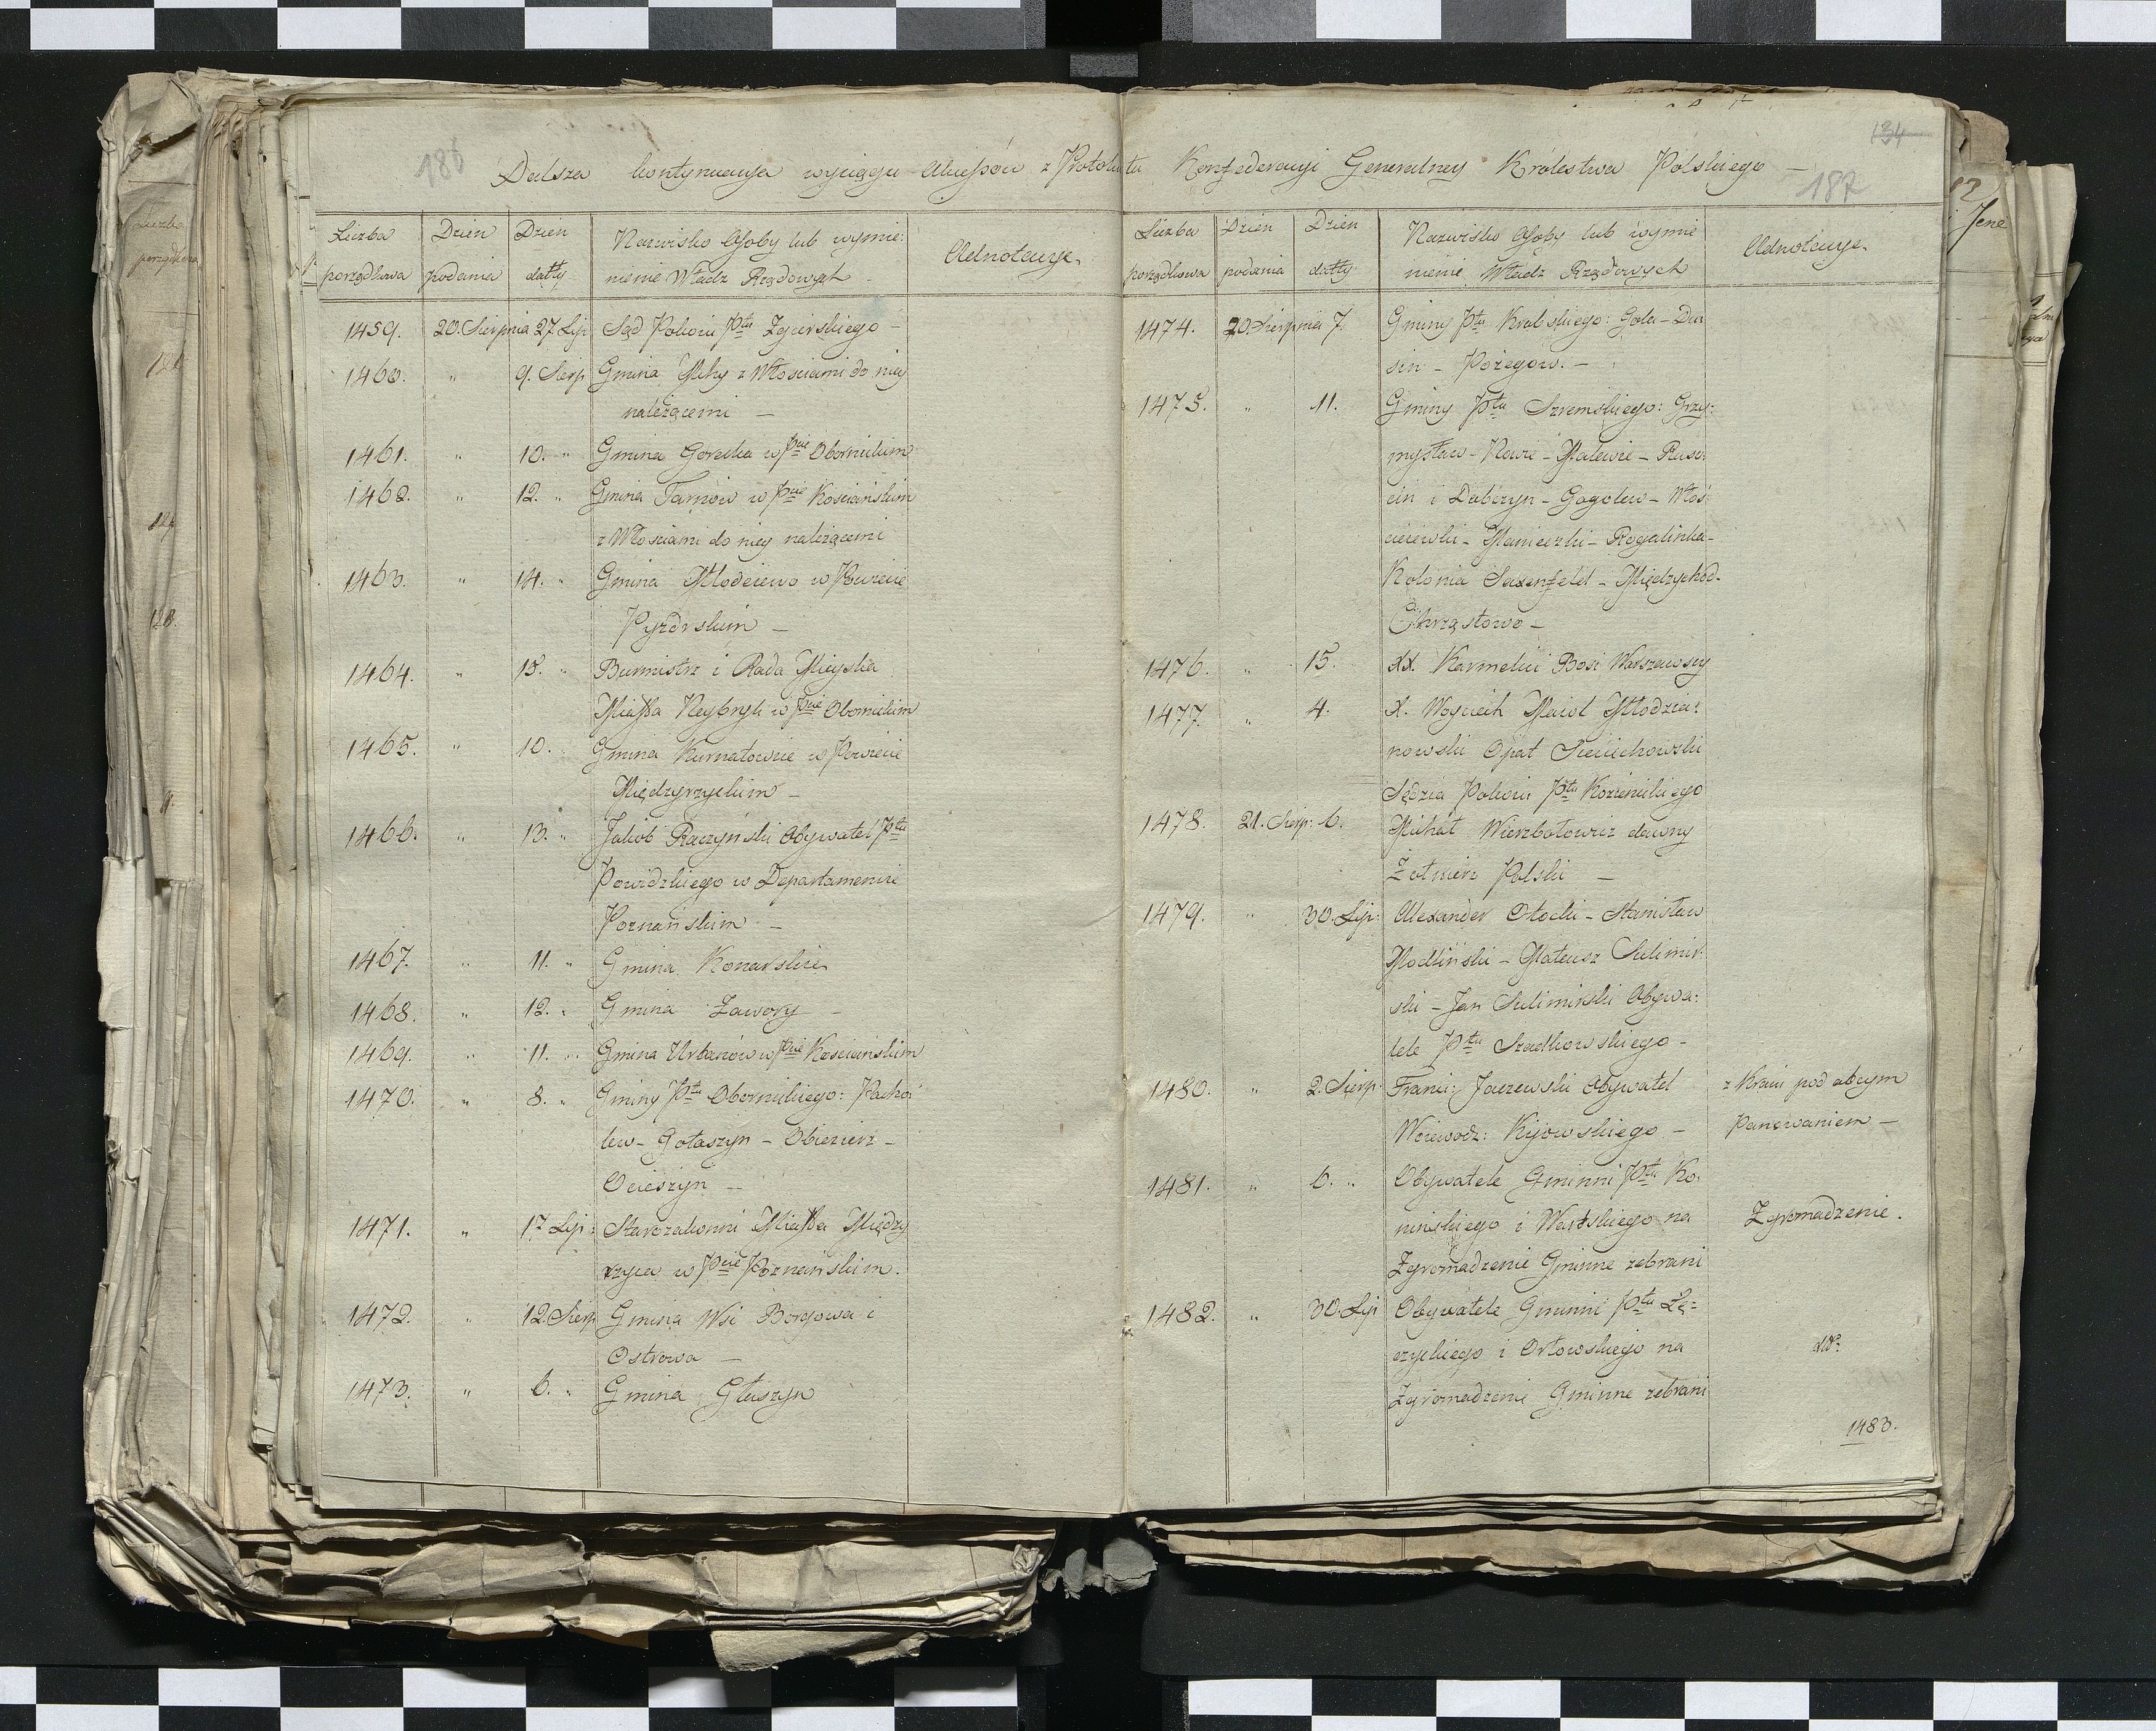 186
134
187
Dalsza kontynuacya wyciągu Akcessów z Protokułu Konfederacyi Generalney Królestwa Polskiego —
Liczba porządkowa
Dzień podania
Dzień datty
Nazwisko Osoby lub wymie:
nienie Władz Rządowych
Adnotacye.
1459. 20. Sierpnia 27. Lip. Sąd Pokoiu Ptu Zgierskiego —
1460. " 9. Sierp Gmina Mchy z Włościami do niey
należącemi —
1461. " 10. " Gmina Gorecka w Pcie Obornickim
1462. " 12. " Gmina Tarnów w Pcie Kościańskim
z Włościami do niey należącemi
1463. " 14. " Gmina Młodciewo w Powiecie
Pyzdrskim —
1464. " 15. " Burmistrz i Rada Mieyska
Miasta Ryczywół w Pcie Obornickim
1465. " 10. Gmina Kurnatowice w Powiecie
Międzyrzyckim —
1466. " 13. " Jakób Raczyński Obywatel Ptu
Powidzkiego w Departamencie
Poznańskim —
1467. " 11. " Gmina Konarskie
1468. " 12. " Gmina Zawory —
1469. " 11. " Gmina Urbanów w Pcie Kościańskim
1470. " 8. " Gminy Ptu Obornickiego: Pacho:
lew — Gołaszyn — Obiezierz —
Ocieszyn —
1471. " 17 Lip: Starozakonni Miasta Między
rzycza w Pcie Poznańskim.
1472. " 12. Sierp Gmina Wsi Borgowa i
Ostrowa —
1473. " 6. " Gmina Głuszyn
Liczba porządkowa
Dzień podania
Dzień datty
Nazwisko Osoby lub wymie
nienie Władz Rządowych
Adnotacye.
1474. 20. Sierpnia 7. Gminy Ptu Krobskiego: Gola — Du
sin — Pożegow. —
1475. " 11. Gminy Ptu Szremskiego: Grzy:
mysław — Nowie — Malewie — Ruso:
cin i Dabczyn — Gogolew — Włoś
cieiewki — Manieczki — Rogalinka —
Kolonia Saxenfeld — Międzychod —
Chrząstowo —
1476. " 15. XX. Karmelici Bosi Warszawscy
1477. " 4. X. Woyciech Młodzia:
nowski Opat Sieciechowski
Sędzia Pokoiu Ptu Kozienickiego
1478. 21. Sierp: 6. Michał Wierzbołowicz dawny
Żołnierz Polski —
1479. " 30. Lip: Alexander Otocki — Stanisław
Modliński — Mateusz Sulimir:
ski — Jan Sulimirski Obywa:
tele Ptu Szadkowskiego —
1480. " 2. Sierp: Franci: Jaczewski Obywatel z Kraiu pod obcym
Woiewodz: Kijowskiego — Panowaniem —
1481. " 6. " Obywatele Gminni Ptu Ko:
nińskiego i Wartskiego na Zgromadzenie.
Zgromadzenie Gminne zebrani
1482. " 30. Lip Obywatele Gminni Ptu Łę:
czyckiego i Orłowskiego na dto
Zgromadzenie Gminne zebrani
1483.